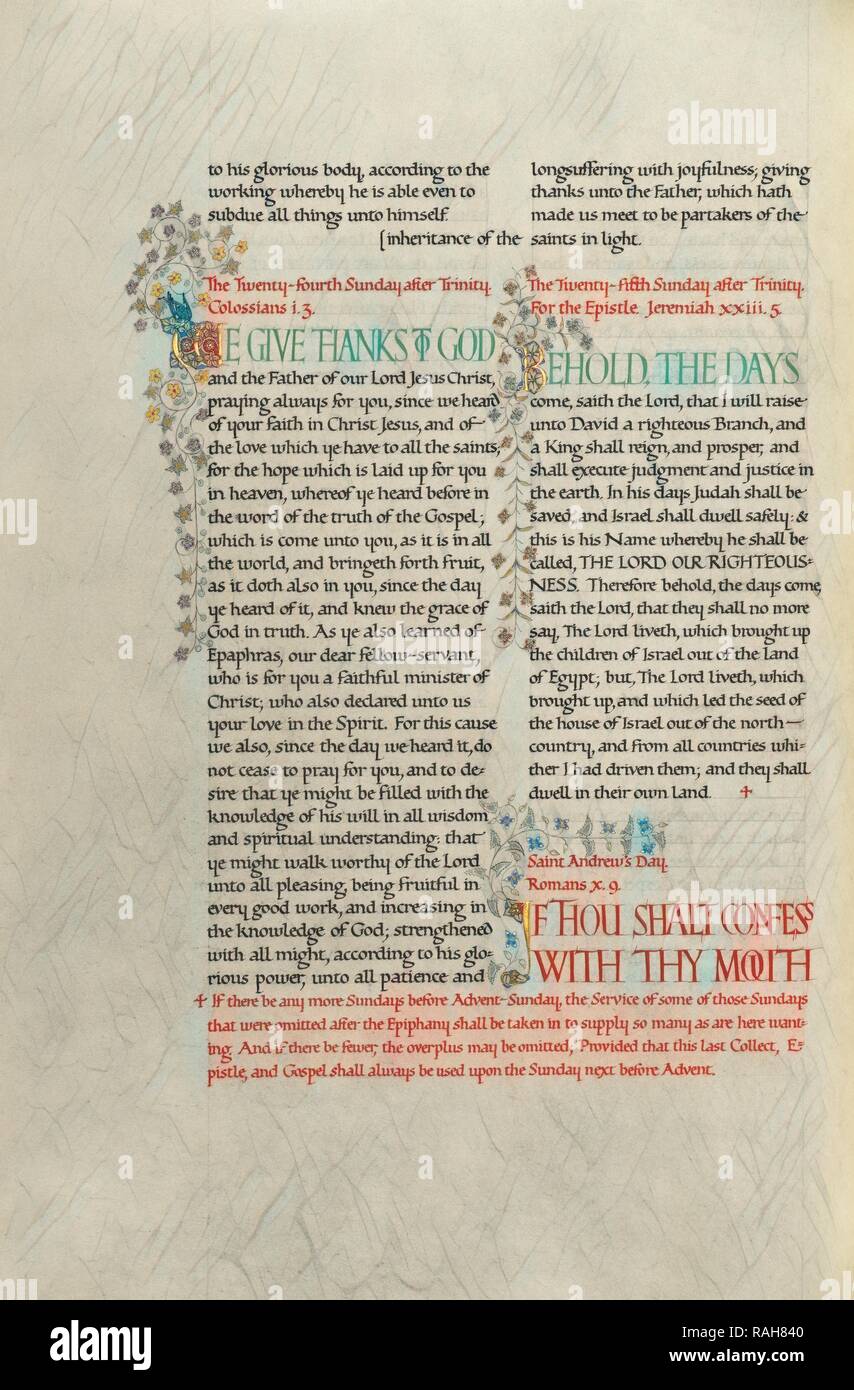 to his glorious body, according to the
working whereby he is able even to
subdue all things unto himself.
The Twenty-fourth Sunday after Trinity.
Colossians i. 3.
WE GIVE THANKS TO GOD
and the Father of our Lord Jesus Christ,
praying always for you, since we heard
of your faith in Christ Jesus, and of
the love which ye have to all the saints,
for the hope which is laid up for you
in heaven, whereof ye heard before in
the word of the truth of the Gospel;
which is come unto you, as it is in all
the world, and bringeth forth fruit,
as it doth also in you, since the day
ye heard of it, and knew the grace of
God in truth. As ye also learned of
Epaphras, our dear fellow-servant,
who is for you a faithful minister of
Christ; who also declared unto us
your love in the Spirit. For this cause
we also, since the day we heard it, do
not cease to pray for you, and to de=
sire that ye might be filled with the
knowledge of his will in all wisdom
and spiritual understanding: that
ye might walk worthy of the Lord
unto all pleasing, being fruitful in
every good work, and increasing in
the knowledge of God; strengthened
with all might, according to his glo=
rious power, unto all patience and
longsuffering with joyfulness; giving
thanks unto the Father, which hath
made us meet to be partakers of the
[inheritance of the saints in light.
The Twenty-fifth Sunday after Trinity.
For the Epistle. Jeremiah xxiii. 5.
BEHOLD, THE DAYS
come, saith the Lord, that I will raise
unto David a righteous Branch, and
a King shall reign, and prosper, and
shall execute judgment and justice in
the earth. In his days Judah shall be
saved, and Israel shall dwell safely: &
this is his Name whereby he shall be
called, THE LORD OUR RIGHTEOUS=
NESS. Therefore behold, the days come,
saith the Lord, that they shall no more
say, The Lord liveth, which brought up
the children of Israel out of the land
of Egypt; but, The Lord liveth, which
brought up, and which led the seed of
the house of Israel out of the north—
country, and from all countries whi=
ther I had driven them; and they shall
dwell in their own land. ✝
Saint Andrew's Day.
Romans x. 9.
IF THOU SHALT CONFESS
WITH THY MOUTH
✝ If there be any more Sundays before Advent-Sunday, the Service of some of those Sundays
that were omitted after the Epiphany shall be taken in to supply so many as are here want=
ing. And if there be fewer, the overplus may be omitted, Provided that this last Collect, E=
pistle, and Gospel shall always be used upon the Sunday next before Advent.
alamy
alamy
alamy
alamy
Image ID: RAH840
www.alamy.com